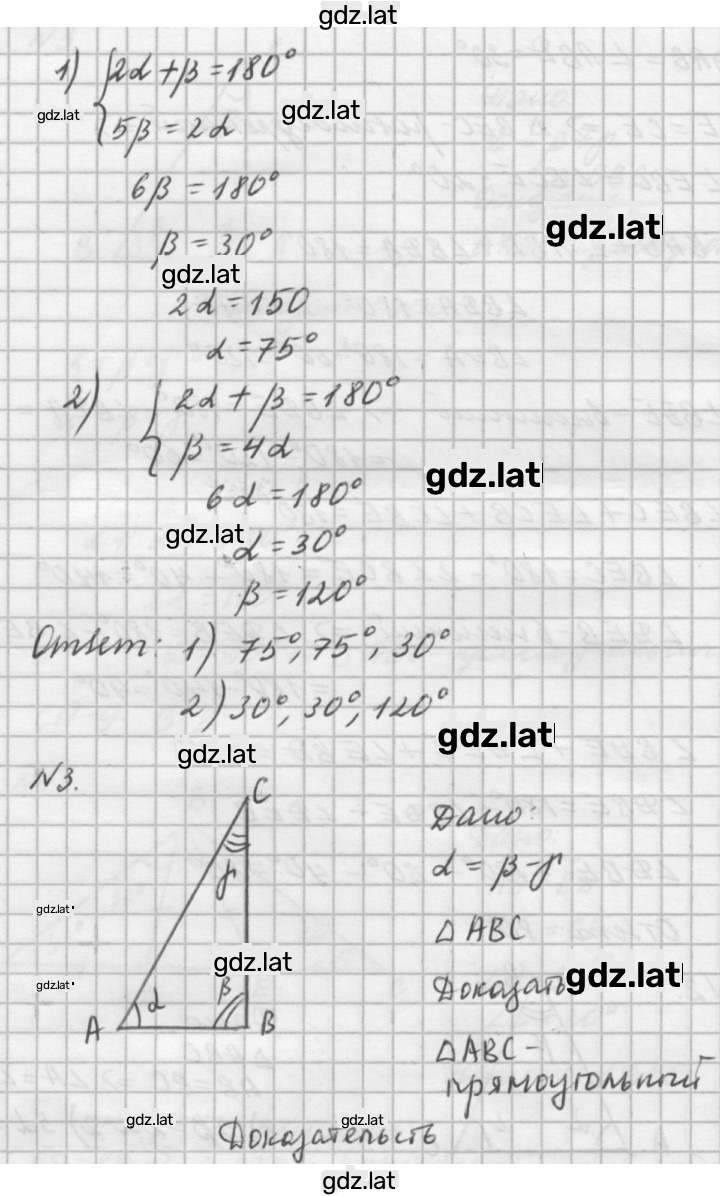 gdz.lat
1) { 2α + β = 180°
gdz.lat
gdz.lat
5β = 2α
6β = 180°
gdz.lat
β = 30°
gdz.lat
2α = 150
α = 75°
2) { 2α + β = 180°
β = 4α
gdz.lat
6α = 180°
gdz.lat
α = 30°
β = 120°
Ответ: 1) 75°, 75°, 30°
2) 30°, 30°, 120°
gdz.lat
gdz.lat
N3.
C
Дано:
γ
α = β - γ
gdz.lat
△ABC
gdz.lat
gdz.lat
gdz.lat
Доказать
α
β
A
B
△ABC -
прямоугольный
gdz.lat
gdz.lat
Доказательсть
gdz.lat